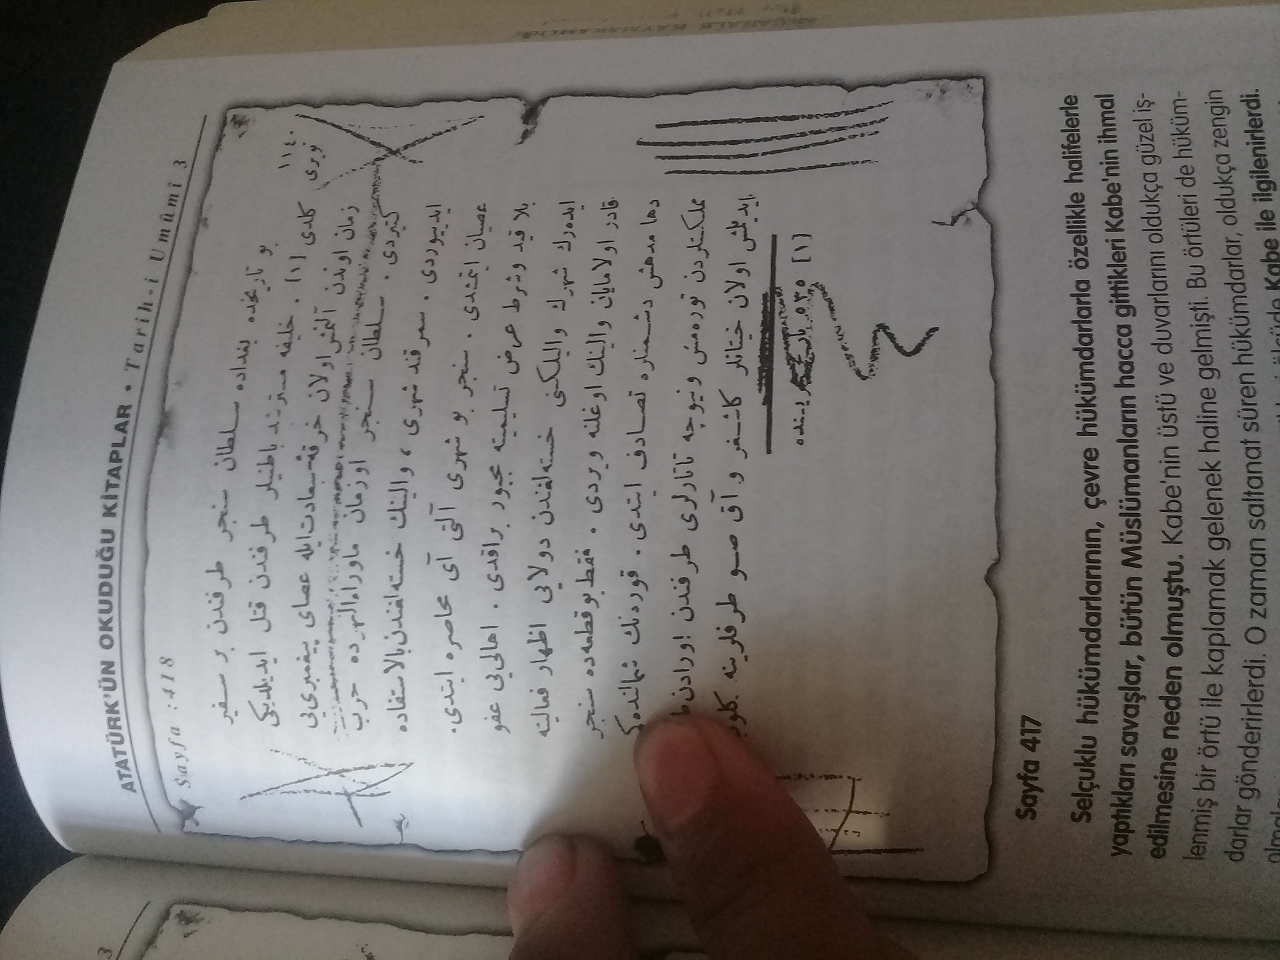 ATATÜRK'ÜN OKUDUĞU KİTAPLAR • Tarih-i Umûmî 3
Sayfa : 418
بو تاریخده بغدادده سلطان سنجر طرفندن بر سفیر
کلدی [١] . خلیفه مسترشد باطنیلر طرفندن قتل ایدیلدیکی
زمان اوندن آلنمش اولان خرقهٔ سعادت ایله عصای پیغمبری یی
کتیردی . سلطان سنجر اوزمان ماوراءالنهرده حرب
ایدییوردی . سمرقند شهری ، والینك خسته‌لغندن بالاستفاده
عصیان ایتمشدی . سنجر بو شهری آلتی آی محاصره ایتدی .
بلا قید وشرط عرض تسلیمیته مجبور براقدی . اهالی یی عفو
ایده‌رك شهرك والیلکنی خسته‌لغندن دولایی اظهار فعالیته
قادر اولامایان والینك اوغلنه ویردی . فقط بو قطعه‌ده سنجر
دها مدهش دشمنلره تصادف ایتدی .
مملکتلردن تورەمش ونیوچه تاتارلری طرفندن اورادن
ایدلمش اولان خیتانلر کاشغر و آق صو طرفلرینه
[١] ٥٣٥
١١٤٠
Sayfa 417
Selçuklu hükümdarlarının, çevre hükümdarlarla özellikle halifelerle
yaptıkları savaşlar, bütün Müslümanların hacca gittikleri Kabe'nin ihmal
edilmesine neden olmuştu. Kabe'nin üstü ve duvarlarını oldukça güzel iş-
lenmiş bir örtü ile kaplamak gelenek haline gelmişti. Bu örtüleri de hüküm-
darlar gönderirlerdi. O zaman saltanat süren hükümdarlar, oldukça zengin
Kabe ile ilgilenirlerdi.
3